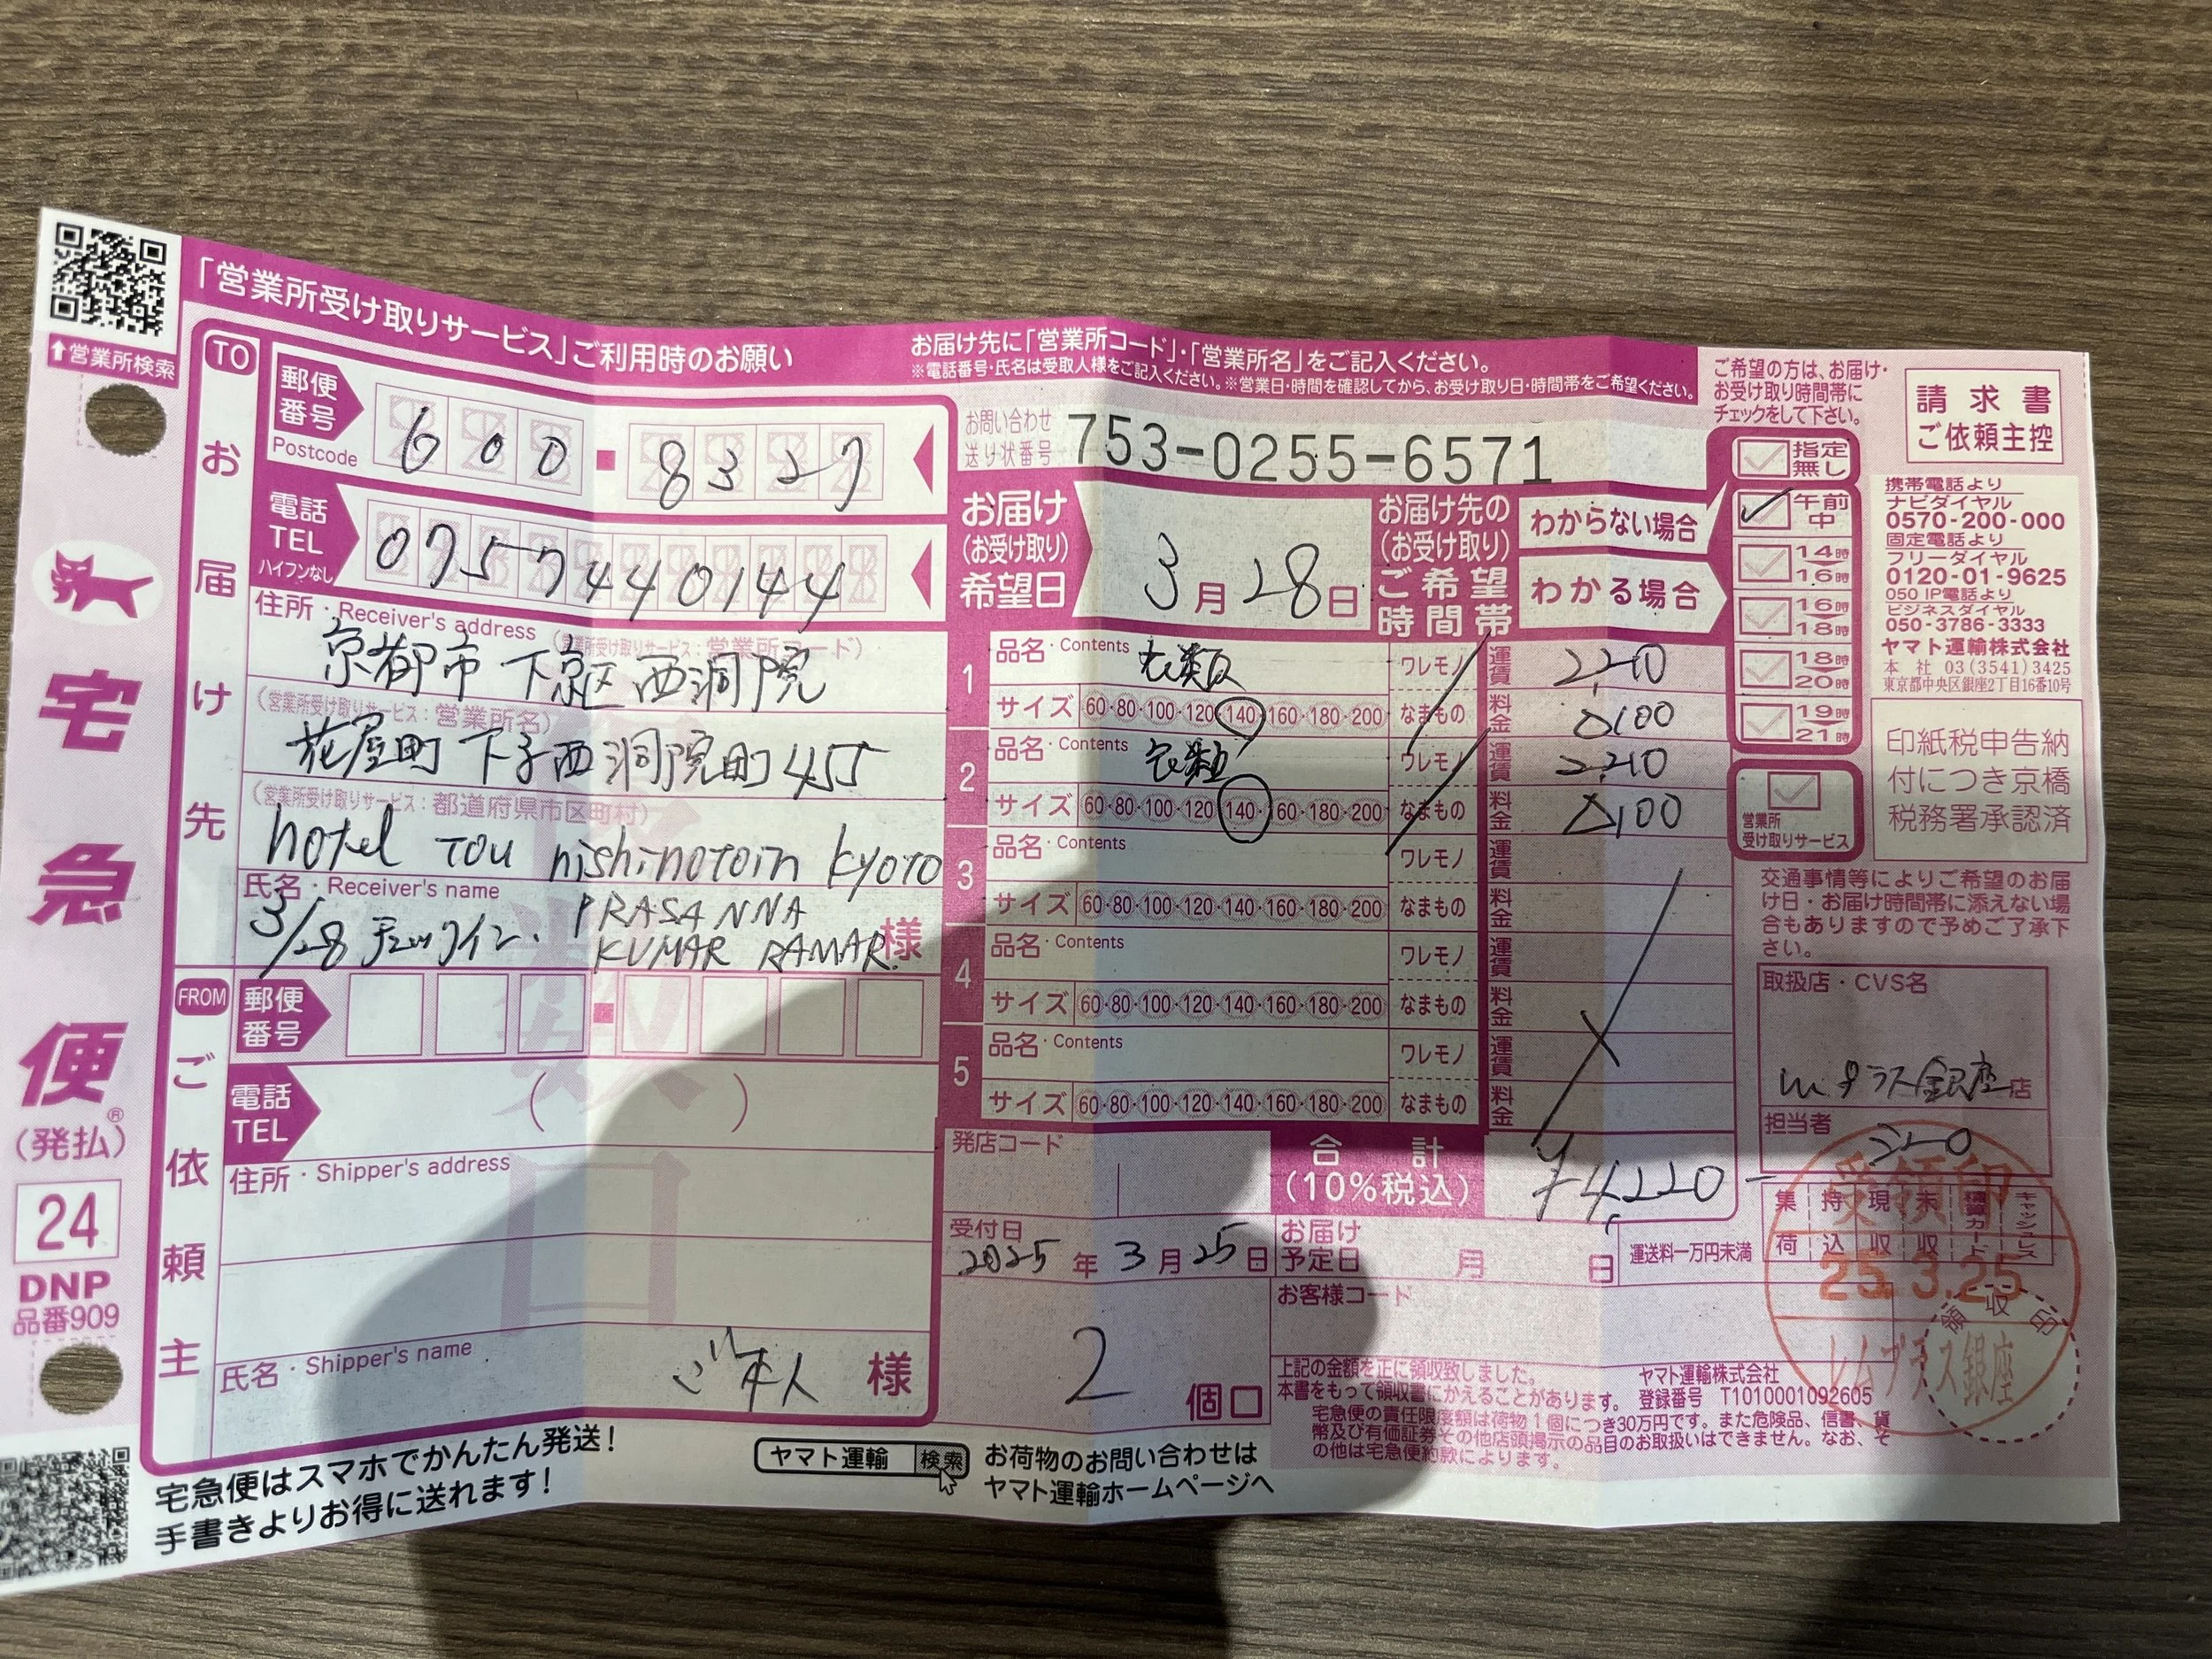 ↑営業所検索
「営業所受け取りサービス」ご利用時のお願い
お届け先に「営業所コード」・「営業所名」をご記入ください。
※電話番号・氏名は受取人様をご記入ください。※営業日・時間を確認してから、お受け取り日・時間帯をご希望ください。
宅急便®
(発払)
24
DNP
品番909
TO
お届け先
郵便番号
Postcode
600-8327
電話
TEL
ハイフンなし
07574440144
住所・Receiver's address
(営業所受け取りサービス:営業所コード)
京都市 下京区西洞院
(営業所受け取りサービス:営業所名)
花屋町 下る西洞院町455
(営業所受け取りサービス:都道府県市区町村)
hotel TOU nishinotoin kyoto
氏名・Receiver's name
3/28 チェックイン.
PRASANNA
KUMAR RAMAR. 様
FROM
ご依頼主
郵便番号
電話
TEL
( )
住所・Shipper's address
複数口
氏名・Shipper's name
ご本人 様
お問い合わせ
送り状番号
753-0255-6571
お届け
(お受け取り)
希望日
3月28日
お届け先の
(お受け取り)
ご希望
時間帯
わからない場合
わかる場合
1 品名・Contents 衣類 ワレモノ 運賃 2,210
サイズ 60・80・100・120・140・160・180・200 なまもの 料金 △100
2 品名・Contents 衣類 ワレモノ 運賃 2,210
サイズ 60・80・100・120・140・160・180・200 なまもの 料金 △100
3 品名・Contents ワレモノ 運賃
サイズ 60・80・100・120・140・160・180・200 なまもの 料金
4 品名・Contents ワレモノ 運賃
サイズ 60・80・100・120・140・160・180・200 なまもの 料金
5 品名・Contents ワレモノ 運賃
サイズ 60・80・100・120・140・160・180・200 なまもの 料金
発店コード
合計
(10%税込)
¥4,220-
受付日
2025年3月25日
お届け
予定日
月 日
運送料一万円未満
2個口
お客様コード
上記の金額を正に領収致しました。
本書をもって領収書にかえることがあります。
宅急便の責任限度額は荷物1個につき30万円です。また危険品、信書、貨
幣及び有価証券その他店頭掲示の品目のお取扱いはできません。なお、そ
の他は宅急便約款によります。
ヤマト運輸株式会社
登録番号 T1010001092605
ご希望の方は、お届け・
お受け取り時間帯に
チェックをして下さい。
指定無し
午前中
14時
16時
16時
18時
18時
20時
19時
21時
営業所
受け取りサービス
請求書
ご依頼主控
携帯電話より
ナビダイヤル
0570-200-000
固定電話より
フリーダイヤル
0120-01-9625
050 IP電話より
ビジネスダイヤル
050-3786-3333
ヤマト運輸株式会社
本社 03(3541)3425
東京都中央区銀座2丁目16番10号
印紙税申告納
付につき京橋
税務署承認済
交通事情等によりご希望のお届
け日・お届け時間帯に添えない場
合もありますので予めご了承下
さい。
取扱店・CVS名
プラス銀座店
担当者
集荷 持込 現収 未収 キャッシュレス
受領印
25.3.25
レムプラス銀座
領収印
宅急便はスマホでかんたん発送!
手書きよりお得に送れます!
ヤマト運輸 検索
お荷物のお問い合わせは
ヤマト運輸ホームページへ